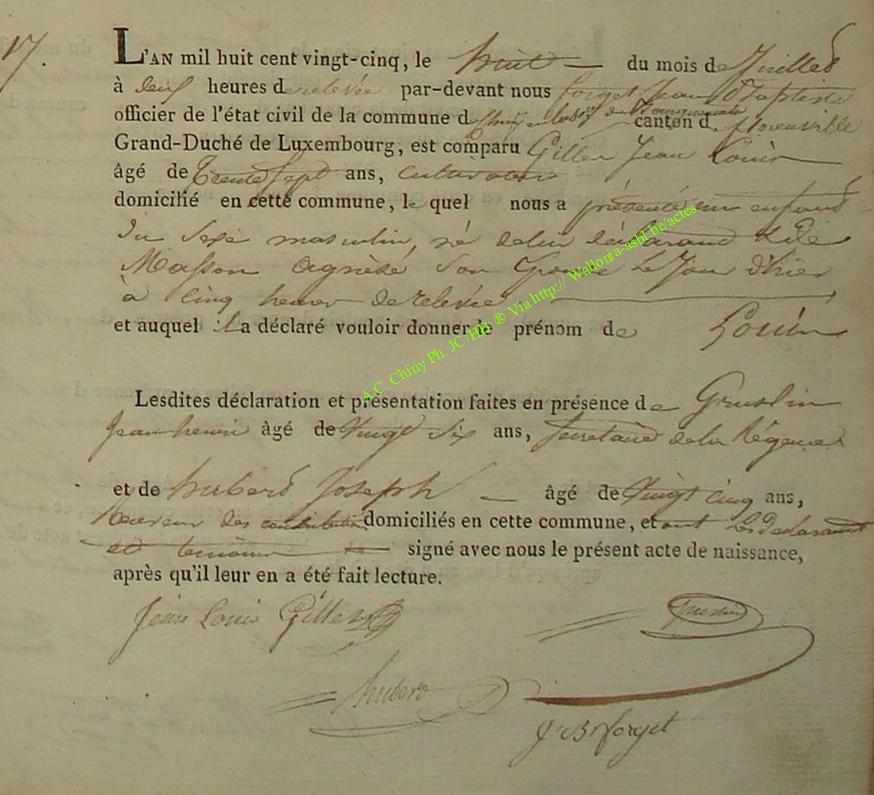 17.
L'AN mil huit cent vingt-cinq, le huit du mois de Juillet
à deux heures de relevée par-devant nous forget Jean Baptiste
officier de l'état civil de la commune de Chiny canton de florenville
Grand-Duché de Luxembourg, est comparu Gilles Jean Louis
âgé de Trente Sept ans, cultivateur
domicilié en cette commune, le quel nous a présenté un enfant
du Sexe masculin, né de lui déclarant & de
Masson Son Epouse le Jour d'hier
à cinq heures de relevée
et auquel il a déclaré vouloir donner le prénom de Louis
Lesdites déclaration et présentation faites en présence de Gruslin
Jean henri âgé de Vingt Six ans, Secretaire de la Régence
et de hubert Joseph âgé de Vingt cinq ans,
Receveur des contributions domiciliés en cette commune, et ont les declarant
et temoins signé avec nous le présent acte de naissance,
après qu'il leur en a été fait lecture.
Jean Louis Gilles
Gruslin
hubert
J. Bte forget
A.C. Chiny Ph. JC/HB ® Via http:// Wallonia-asbl.be/actes